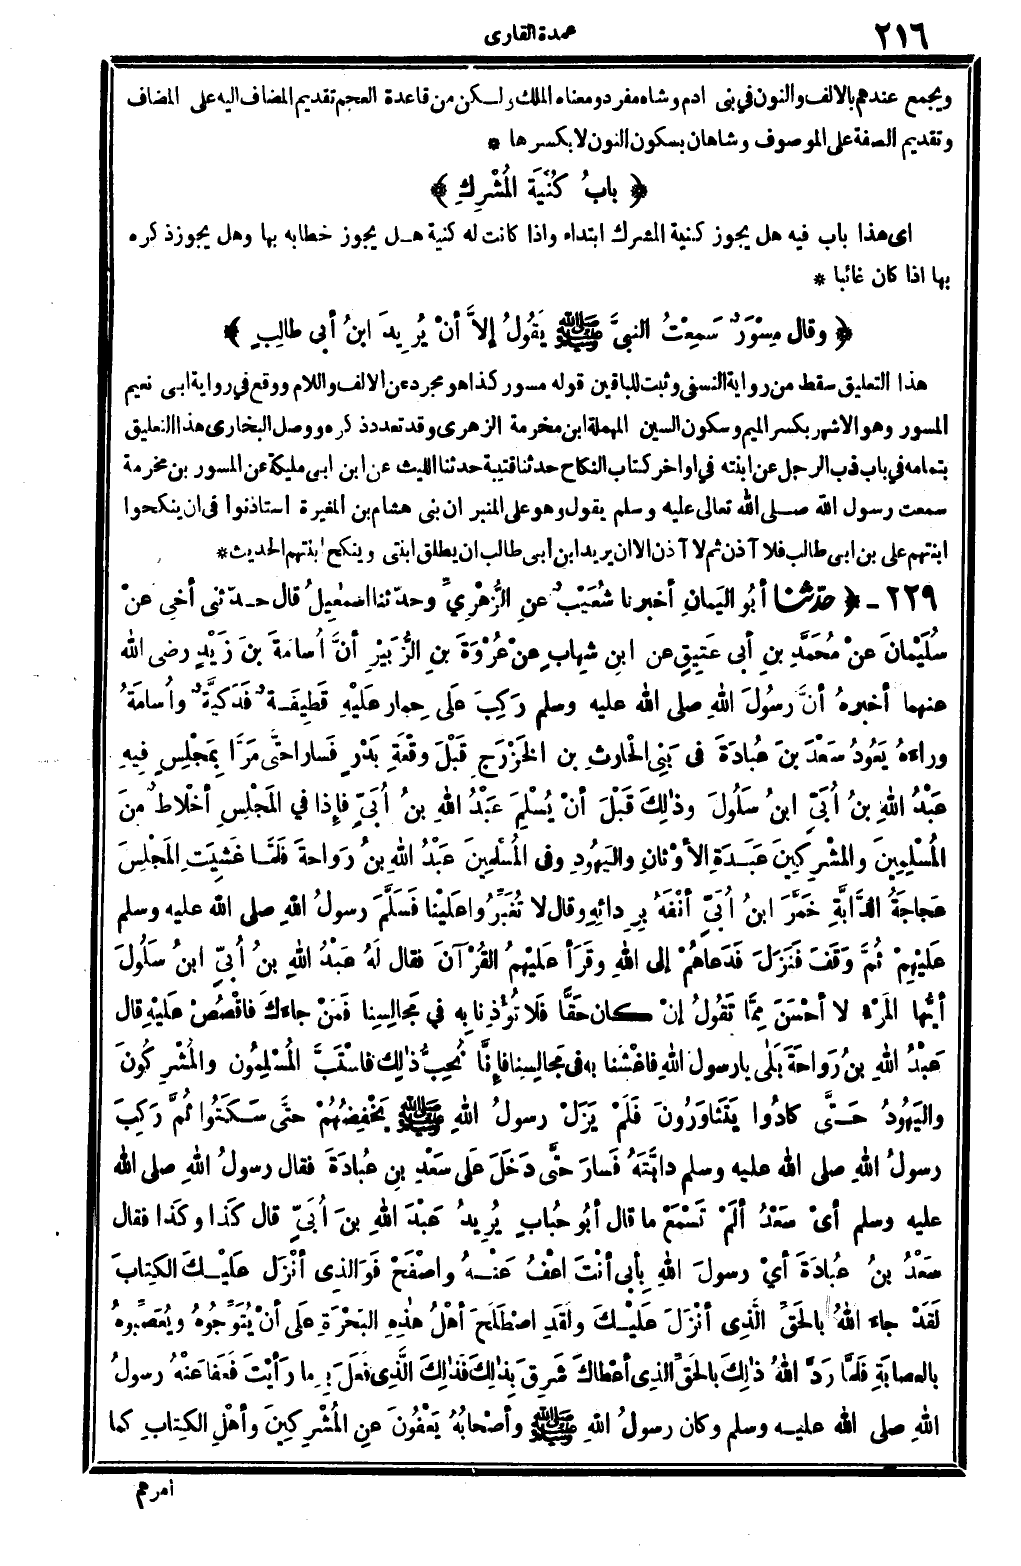 ٢١٦
عمدة القارى
ويجمع عندهم بالالف والنون في بنى ادم وشاه مفرد ومعناه الملك ولكن من قاعدة العجم تقديم المضاف اليه على المضاف
وتقديم الصفة على الموصوف وشاهان بسكون النون لا بكسرها *
﴿ بابُ كُنْيَةِ المُشْرِكِ ﴾
اى هذا باب فيه هل يجوز كنية المشرك ابتداء واذا كانت له كنية هل يجوز خطابه بها وهل يجوز ذكره
بها اذا كان غائبا *
﴿ وقال مِسْوَرٌ سَمِعْتُ النبيَّ ﷺ يَقُولُ إلاَّ أنْ يُرِيدَ ابنُ أبى طالِبٍ ﴾
هذا التعليق سقط من رواية النسفى وثبت للباقين قوله مسور كذا هو مجرد عن الالف واللام ووقع في رواية ابى نعيم
المسور وهو الاشهر بكسر الميم وسكون السين المهملة ابن مخرمة الزهرى وقد تعدد ذكره ووصل البخارى هذا التعليق
بتمامه في باب ذب الرجل عن ابنته في اواخر كتاب النكاح حدثنا قتيبة حدثنا الليث عن ابن ابى مليكة عن المسور بن مخرمة
سمعت رسول الله صلى الله تعالى عليه وسلم يقول وهو على المنبر ان بنى هشام بن المغيرة استاذنوا في ان ينكحوا
ابنتهم على بن ابى طالب فلا آذن ثم لا آذن الا ان يريد ابن ابى طالب ان يطلق ابنتى وينكح ابنتهم الحديث *
٢٢٩ - ﴿ حدّثنا أبُو اليَمانِ أخبرنا شُعَيْبٌ عنِ الزُّهْرِيِّ وحدّثنا اسْمٰعِيلُ قال حدّثنى أخِي عنْ
سُلَيْمانَ عنْ مُحَمَّدِ بنِ أبى عَتِيقٍ عن ابنِ شِهابٍ عنْ عُرْوَةَ بنِ الزُّبَيْرِ أنَّ أُسامَةَ بنَ زَيْدٍ رضى الله
عنهما أخبرهُ أنَّ رسُولَ اللهِ صلى الله عليه وسلم رَكِبَ عَلَى حِمارٍ عَلَيْهِ قَطِيفَةٌ فَدَكِيَّةٌ وأُسامَةُ
وراءَهُ يَعُودُ سَعْدَ بنَ عُبادَةَ فى بَنِى الحارِثِ بنِ الخَزْرَجِ قَبْلَ وقْعَةِ بَدْرٍ فَسارا حتَّى مَرَّا بِمَجْلِسٍ فِيهِ
عَبْدُ اللهِ بنُ أُبَيٍّ ابنُ سَلُولَ وذٰلِكَ قَبْلَ أنْ يُسْلِمَ عَبْدُ اللهِ بنُ أُبَيٍّ فإذا في المَجْلِسِ أخْلاطٌ منَ
المُسْلِمِينَ والمُشْرِكِينَ عَبَدَةِ الأوْثانِ واليَهُودِ وفى المُسْلِمِينَ عَبْدُ اللهِ بنُ رَواحةَ فَلمَّا غَشِيَتِ المَجْلِسَ
عَجاجَةُ الدَّابَّةِ خَمَّرَ ابنُ أُبَيٍّ أنْفَهُ بِرِدائِهِ وقال لا تُغَبِّرُوا عَلَيْنا فَسَلَّمَ رسولُ اللهِ صلى الله عليه وسلم
عَلَيْهِمْ ثُمَّ وَقَفَ فَنَزَلَ فَدَعاهُمْ إلى اللهِ وقَرَأ عَلَيْهِمُ القُرْآنَ فقال لَهُ عَبْدُ اللهِ بنُ أُبَيٍّ ابنُ سَلُولَ
أيُّها المَرْءُ لا أحْسَنَ مِمَّا تَقُولُ إنْ كان حَقًّا فَلا تُؤْذِنا بِهِ في مَجالِسِنا فَمَنْ جاءَكَ فاقْصُصْ عَلَيْهِ قال
عَبْدُ اللهِ بنُ رَواحَةَ بَلَى يارسولَ اللهِ فاغْشَنا به فى مَجالِسِنا فإنَّا نُحِبُّ ذٰلِكَ فاسْتَبَّ المُسْلِمُون والمُشْرِكُونَ
واليَهُودُ حَتَّى كادُوا يَتَثاوَرُونَ فَلَمْ يَزَلْ رسولُ اللهِ ﷺ يَخْفِضُهُمْ حتَّى سَكَتُوا ثُمَّ رَكِبَ
رسولُ اللهِ صلى الله عليه وسلم دابَّتَهُ فَسارَ حتَّى دَخَلَ عَلَى سَعْدِ بنِ عُبادَةَ فقال رسولُ اللهِ صلى الله
عليه وسلم أىْ سَعْدُ ألَمْ تَسْمَعْ ما قال أبُو حُبابٍ يُرِيدُ عَبْدَ اللهِ بنَ أُبَيٍّ قال كَذا وكَذا فقال
سَعْدُ بنُ عُبادَةَ أيْ رسولَ اللهِ بِأبى أنْتَ اعْفُ عَنْهُ واصْفَحْ فَوَالذِى أنْزَلَ عَلَيْكَ الكِتابَ
لَقَدْ جاءَ اللهُ بالحَقِّ الَّذِى أنْزَلَ عَلَيْكَ ولَقَدِ اصْطَلَحَ أهْلُ هٰذِهِ البَحْرَةِ عَلى أنْ يُتَوِّجُوهُ ويُعَصِّبُوهُ
بالعِصابَةِ فَلمَّا رَدَّ اللهُ ذٰلِكَ بالحَقِّ الذِى أعْطاكَ شَرِقَ بِذٰلِكَ فَذٰلِكَ الَّذِى فَعَلَ بِهِ ما رَأيْتَ فَعَفا عَنْهُ رسولُ
اللهِ صلى الله عليه وسلم وكان رسولُ اللهِ ﷺ وأصْحابُهُ يَعْفُونَ عنِ المُشْرِكِينَ وأهْلِ الكِتابِ كما
أمرهم